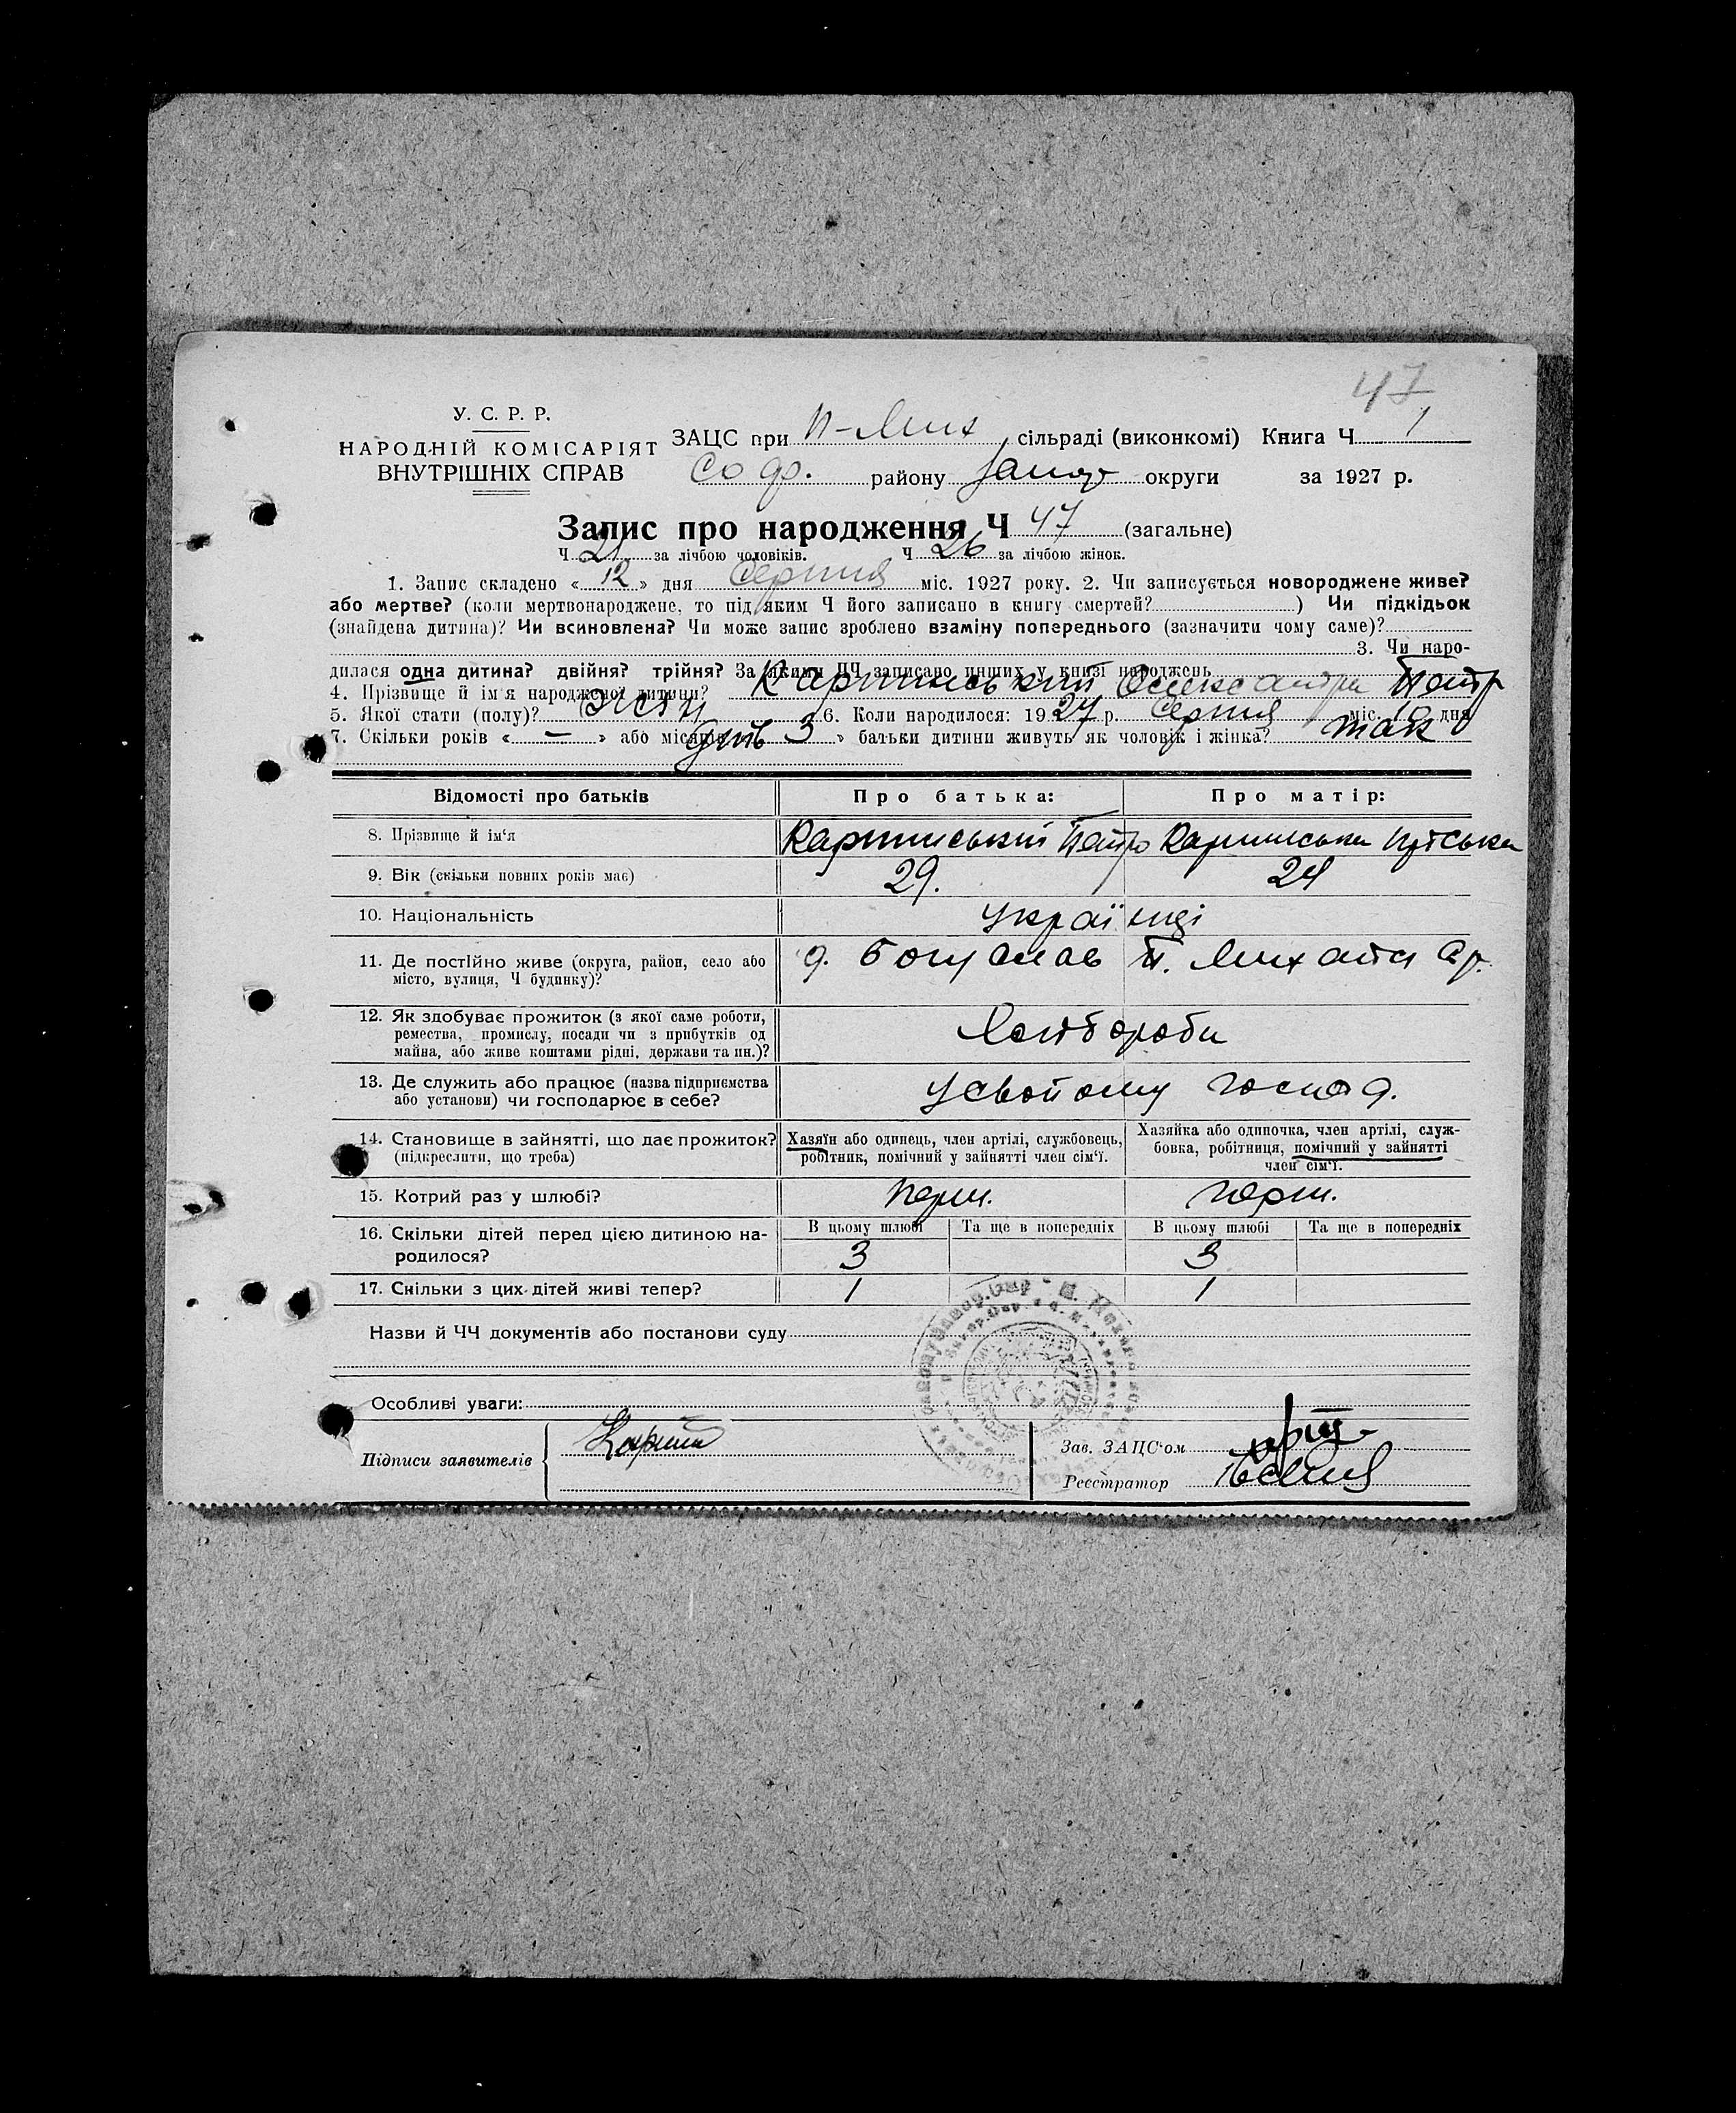 47
У. С. Р. Р.
НАРОДНІЙ КОМІСАРІЯТ
ВНУТРІШНІХ СПРАВ
ЗАЦС при П-Мих сільраді (виконкомі) Книга Ч 1
Соф. району Запор округи за 1927 р.
Запис про народження Ч 47 (загальне)
Ч 21 за лічбою чоловіків. Ч 26 за лічбою жінок.
1. Запис складено « 12 » дня Серпня міс. 1927 року. 2. Чи записується новороджене живе?
або мертве? (коли мертвонароджене, то під яким Ч його записано в книгу смертей? ) Чи підкідьок
(знайдена дитина)? Чи всиновлена? Чи може запис зроблено взаміну попереднього (зазначити чому саме)?
3. Чи наро-
дилася одна дитина? двійня? трійня? За якими ЧЧ записано инших у книзі народжень
4. Прізвище й ім'я народженої дитини? Олександра Петр
5. Якої статі (полу)? жін 6. Коли народилося: 1927 р. Серпня міс. 10 дня
7. Скільки років « — » або місяців « днів 3 » батьки дитини живуть як чоловік і жінка? так
Відомості про батьків
Про батька:
Про матір:
8. Прізвище й ім'я Петро
9. Вік (скільки повних років має) 29. 24
10. Національність Українці
11. Де постійно живе (округа, район, село або
місто, вулиця, Ч будинку)?
д. Богуслав П. Михайл
12. Як здобуває прожиток (з якої саме роботи,
ремества, промислу, посади чи з прибутків од
майна, або живе коштами рідні, держави та ин.)?
Хлібороби
13. Де служить або працює (назва підприємства
або установи) чи господарює в себе?
У свойому господ.
14. Становище в зайнятті, що дає прожиток?
(підкреслити, що треба)
Хазяїн або одинець, член артілі, службовець,
робітник, помічний у зайнятті член сім'ї.
Хазяйка або одиночка, член артілі, служ-
бовка, робітниця, помічний у зайнятті
член сім'ї.
15. Котрий раз у шлюбі? перш. перш.
16. Скільки дітей перед цією дитиною на-
родилося?
В цьому шлюбі Та ще в попередніх В цьому шлюбі Та ще в попередніх
3 3
17. Скільки з цих дітей живі тепер? 1 1
Назви й ЧЧ документів або постанови суду
Особливі уваги:
Підписи заявителів
Зав. ЗАЦС'ом
Реєстратор